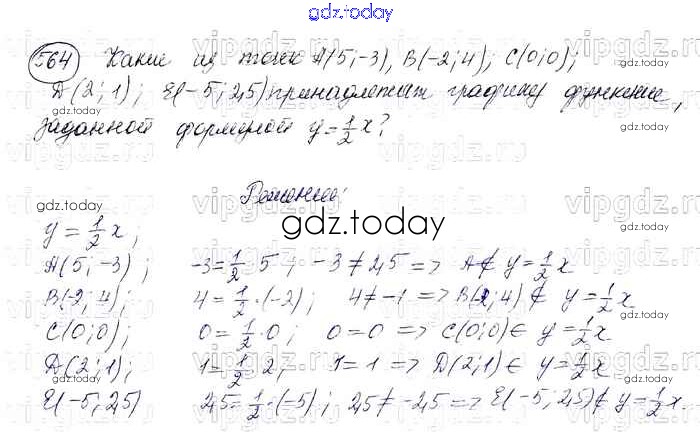 gdz.today
564 Какие из точек A(5;-3), B(-2;4); C(0;0);
D(2;1); E(-5;2,5) принадлежат графику функции,
заданной формулой y=1/2x?
Решение:
gdz.today
gdz.today
gdz.today
y=1/2x;
A(5;-3); -3=1/2·5; -3≠2,5=> A∉ y=1/2x
B(-2;4); 4=1/2·(-2); 4≠-1=> B(-2;4)∉ y=1/2x
C(0;0); 0=1/2·0; 0=0 => C(0;0)∈ y=1/2x
gdz.today
gdz.today
D(2;1); 1=1/2·2; 1=1 => D(2;1)∈ y=1/2x
E(-5;2,5) 2,5=1/2·(-5); 2,5≠-2,5=> E(-5;2,5)∉ y=1/2x.
gdz.today
vipgdz.ru